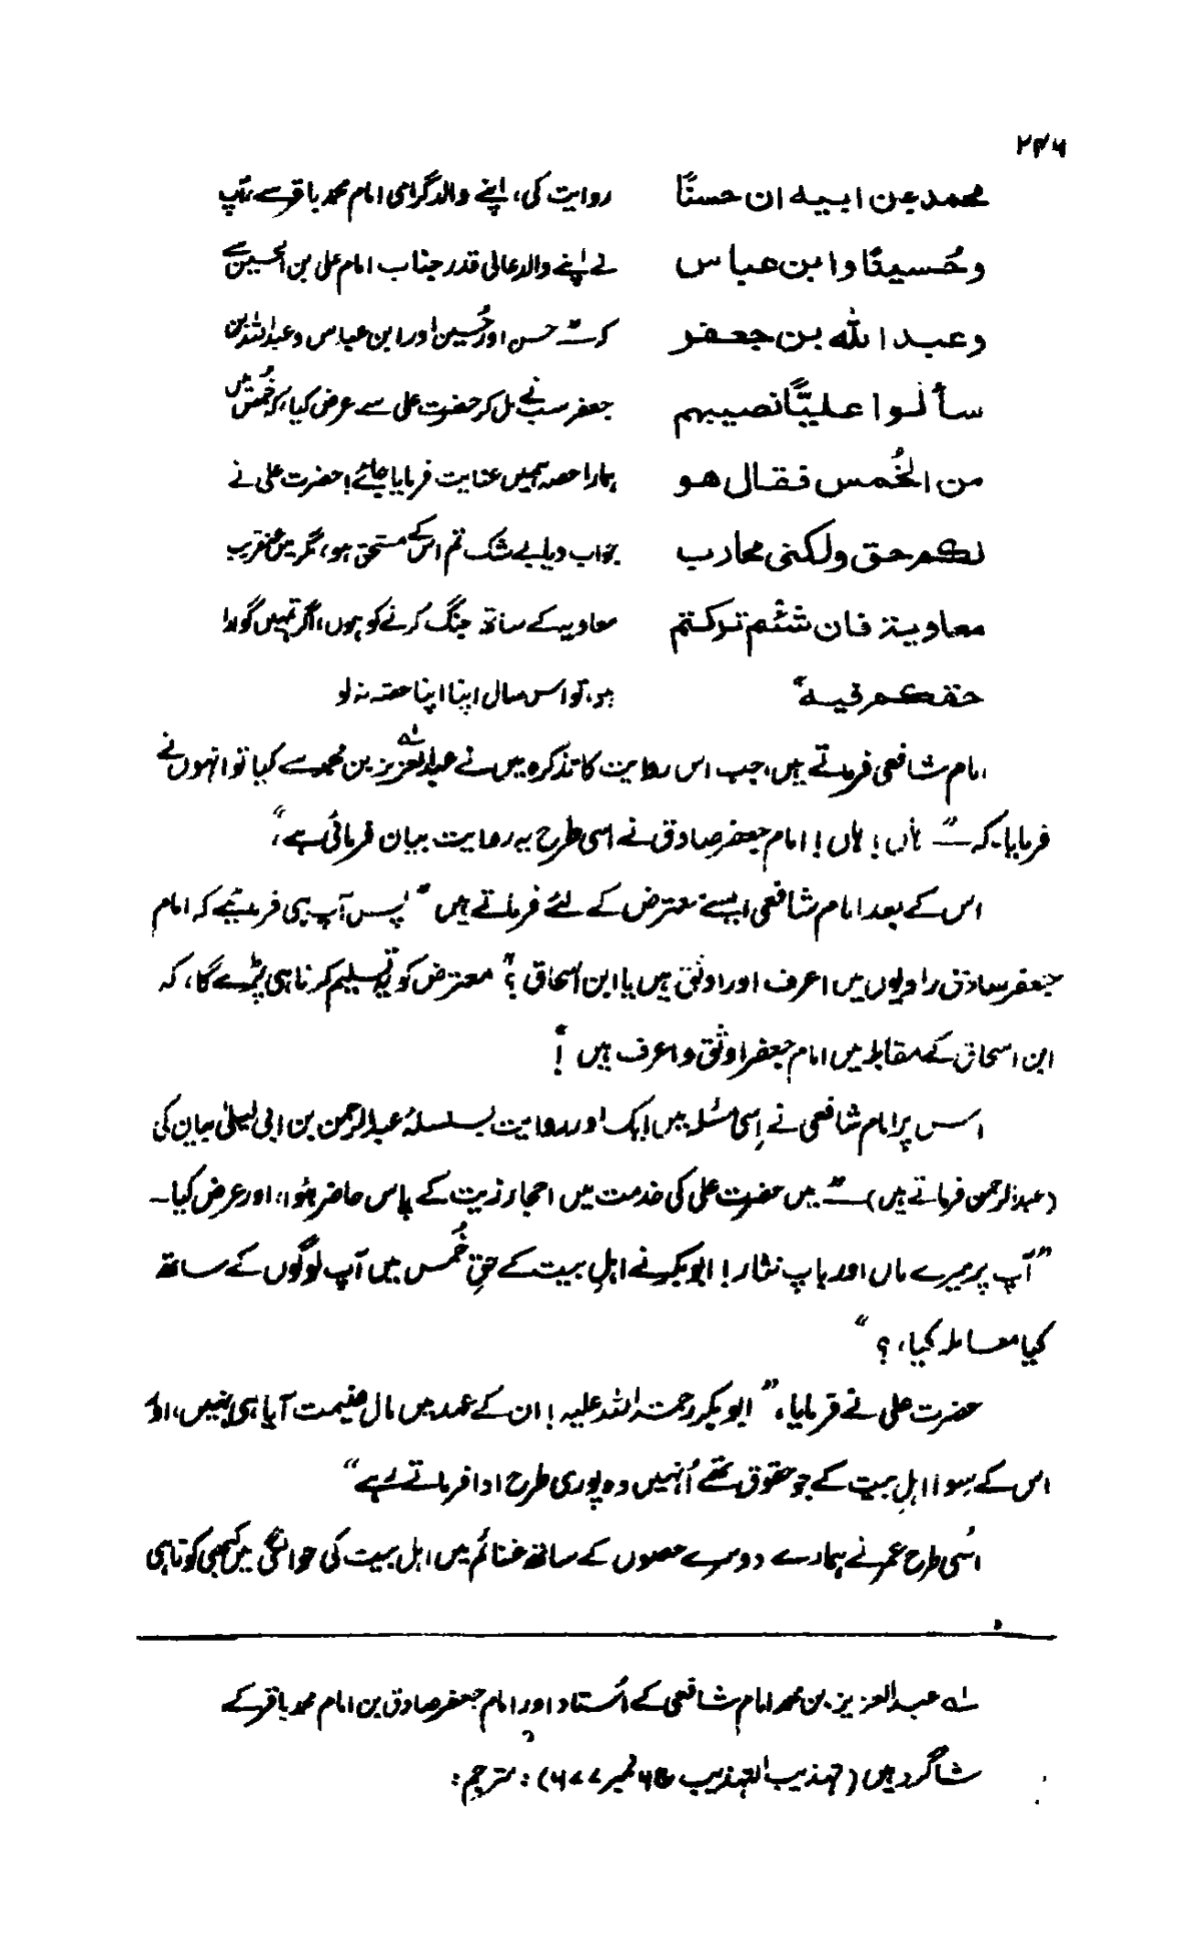 ۲۴۶
محمد عن ابيه ان حسنًا
وحُسينًا وابن عباس
وعبدالله بن جعفر
سألوا عليًّا نصيبهم
من الخُمس فقال هو
لكم حق ولكنی محارب
معاوية فان شئتم تركتم
حقكم فيه"
روایت کی، اپنے والد گرامی امام محمد باقر سے، آپ
نے اپنے والد عالی قدر جناب امام علی بن الحسین سے
کہ "حسن اور حُسین اور ابن عباس و عبداللہ بن
جعفر سب نے مل کر حضرت علی سے عرض کیا، کہ خُمس میں
ہمارا حصہ ہمیں عنایت فرمایا جائے! حضرت علی نے
جواب دیا بے شک تم اس کے مستحق ہو، مگر میں عنقریب
معاویہ کے ساتھ جنگ کرنے کو ہوں، اگر تمہیں گوارا
ہو، تو اس سال اپنا اپنا حصہ نہ لو
امام شافعی فرماتے ہیں، جب اس روایت کا تذکرہ میں نے عبدالعزیز لہ بن محمد سے کیا تو انہوں نے
فرمایا۔ کہ " ہاں! ہاں! امام جعفر صادق نے اسی طرح یہ روایت بیان فرمائی ہے،"
اس کے بعد امام شافعی ایسے معترض کے لئے فرماتے ہیں "پس آپ ہی فرمائیے کہ امام
جعفر صادق راویوں میں اعرف اور اوثق ہیں یا ابن اسحاق ؟" معترض کو یہ تسلیم کرنا ہی پڑے گا، کہ
ابن اسحاق کے مقابلہ میں امام جعفر اوثق و اعرف ہیں !"
اس پر امام شافعی نے اِسی مسئلہ میں ایک اور روایت بسلسلۂ عبدالرحمن بن ابی لیلیٰ بیان کی
(عبدالرحمن فرماتے ہیں) "میں حضرت علی کی خدمت میں احجار زیت کے پاس حاضر ہُوا، اور عرض کیا۔
"آپ پر میرے ماں اور باپ نثار! ابوبکر نے اہلِ بیت کے حقِ خُمس میں آپ لوگوں کے ساتھ
کیا معاملہ کیا، ؟"
حضرت علی نے فرمایا، "ابوبکر رحمۃ اللہ علیہ! ان کے عہد میں مال غنیمت آیا ہی نہیں، اور
اس کے سوا اہلِ بیت کے جو حقوق تھے اُنہیں وہ پوری طرح ادا فرماتے رہے"
اُسی طرح عمر نے ہمارے دوسرے حصوں کے ساتھ غنائم میں اہل بیت کی حوالگی میں کبھی کوتاہی
لہ عبدالعزیز بن محمد امام شافعی کے اُستاد اور امام جعفر صادق بن امام محمد باقر کے
شاگرد ہیں (تہذیب التہذیب ج۶ نمبر ۶۷۷): مترجم: